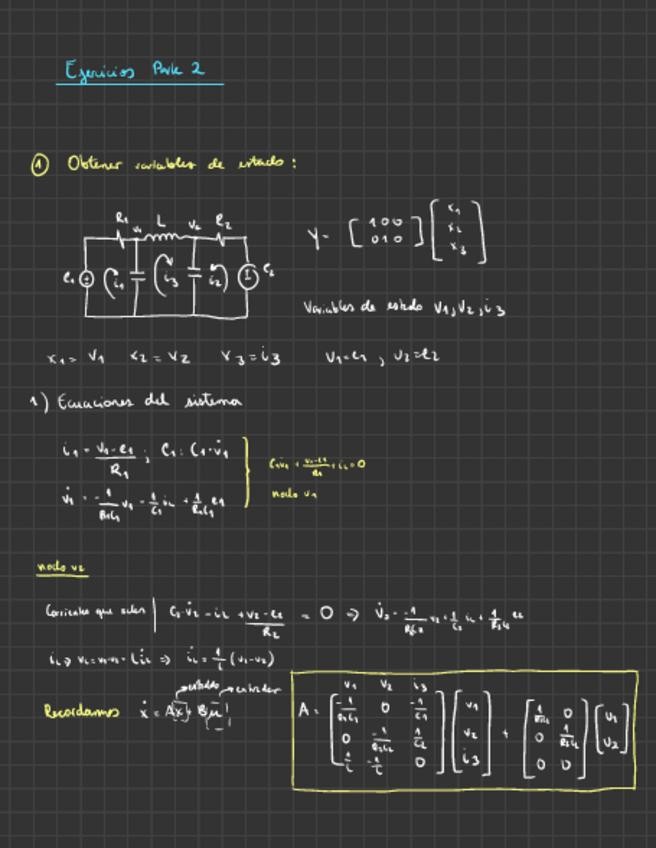 Ejercicios Parte 2
① Obtener variables de estado:
R1 V1 L V2 R2
e1 i1 i3 i2 e2
Y = [1 0 0; 0 1 0] [x1; x2; x3]
Variables de estado V1, V2, i3
x1 = V1 x2 = V2 x3 = i3 U1=e1, U2=e2
1) Ecuaciones del sistema
i1 = (V1-e1)/R1 ; C1: C1·v̇1
C1v̇1 + (v1-e1)/R1 + iL = 0
v̇1 = -1/(R1C1) v1 - 1/C1 iL + 1/(R1C1) e1
nodo v1
nodo v2
Corrientes que salen | C2·v̇2 - iL + (v2-e2)/R2 = 0 ⇒ v̇2 = -1/(R2C2) v2 + 1/C2 iL + 1/(R2C2) e2
iL ⇒ vL = v1-v2 = L i̇L ⇒ i̇L = 1/L (v1-v2)
estado entradas
Recordamos ẋ = Ax + Bu
v1 v2 i3
A = [-1/(R1C1) 0 -1/C1; 0 -1/(R2C2) 1/C2; 1/L -1/L 0] [v1; v2; i3] + [1/(R1C1) 0; 0 1/(R2C2); 0 0] [u1; u2]